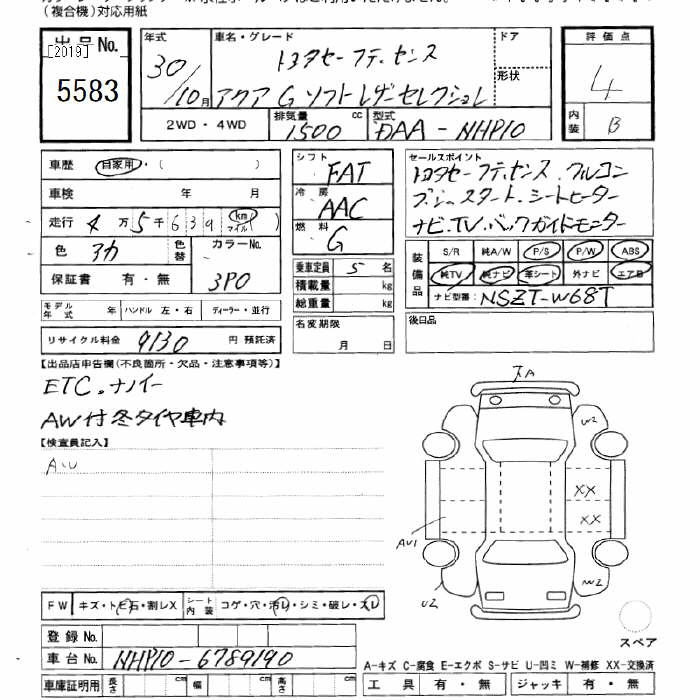 (複合機)対応用紙
出品No.
[2019]
5583
年式
30/10月
車名・グレード
トヨタセーフティセンス
アクア G ソフトレザーセレクション
ドア
形状
評価点
4
内装
B
2WD・4WD
排気量
1500 cc
型式
DAA-NHP10
車歴 自家用・( )
車検 年 月
走行 4万5千639 (km マイル)
色 アカ 色替
カラーNo.
3P0
保証書 有・無
モデル年式 年 ハンドル 左・右 ディーラー・並行
リサイクル料金 9130 円 預託済
シフト
FAT
冷房
AAC
燃料
G
乗車定員 5 名
積載量 kg
総重量 kg
名変期限
月 日
セールスポイント
トヨタセーフティセンス.クルコン
プッシュスタート.シートヒーター
ナビ.TV.バックガイドモニター
装備品
S/R 純A/W P/S P/W ABS
純TV 純ナビ 革シート 外ナビ エアB
ナビ型番: NSZT-W68T
後日品
【出品店申告欄(不良箇所・欠品・注意事項等)】
ETC.ナノイー
AW付冬タイヤ車内
【検査員記入】
A・U
FW キズ・トビ石・割レX シート内装 コゲ・穴・汚レ・シミ・破レ・スレ
登録No.
車台No. NHP10-6789190
車庫証明用 長さ cm 幅 cm 高さ cm
A
U2
XX
XX
AU1
U2
W2
スペア
A-キズ C-腐食 E-エクボ S-サビ U-凹ミ W-補修 XX-交換済
工具 有・無 ジャッキ 有・無